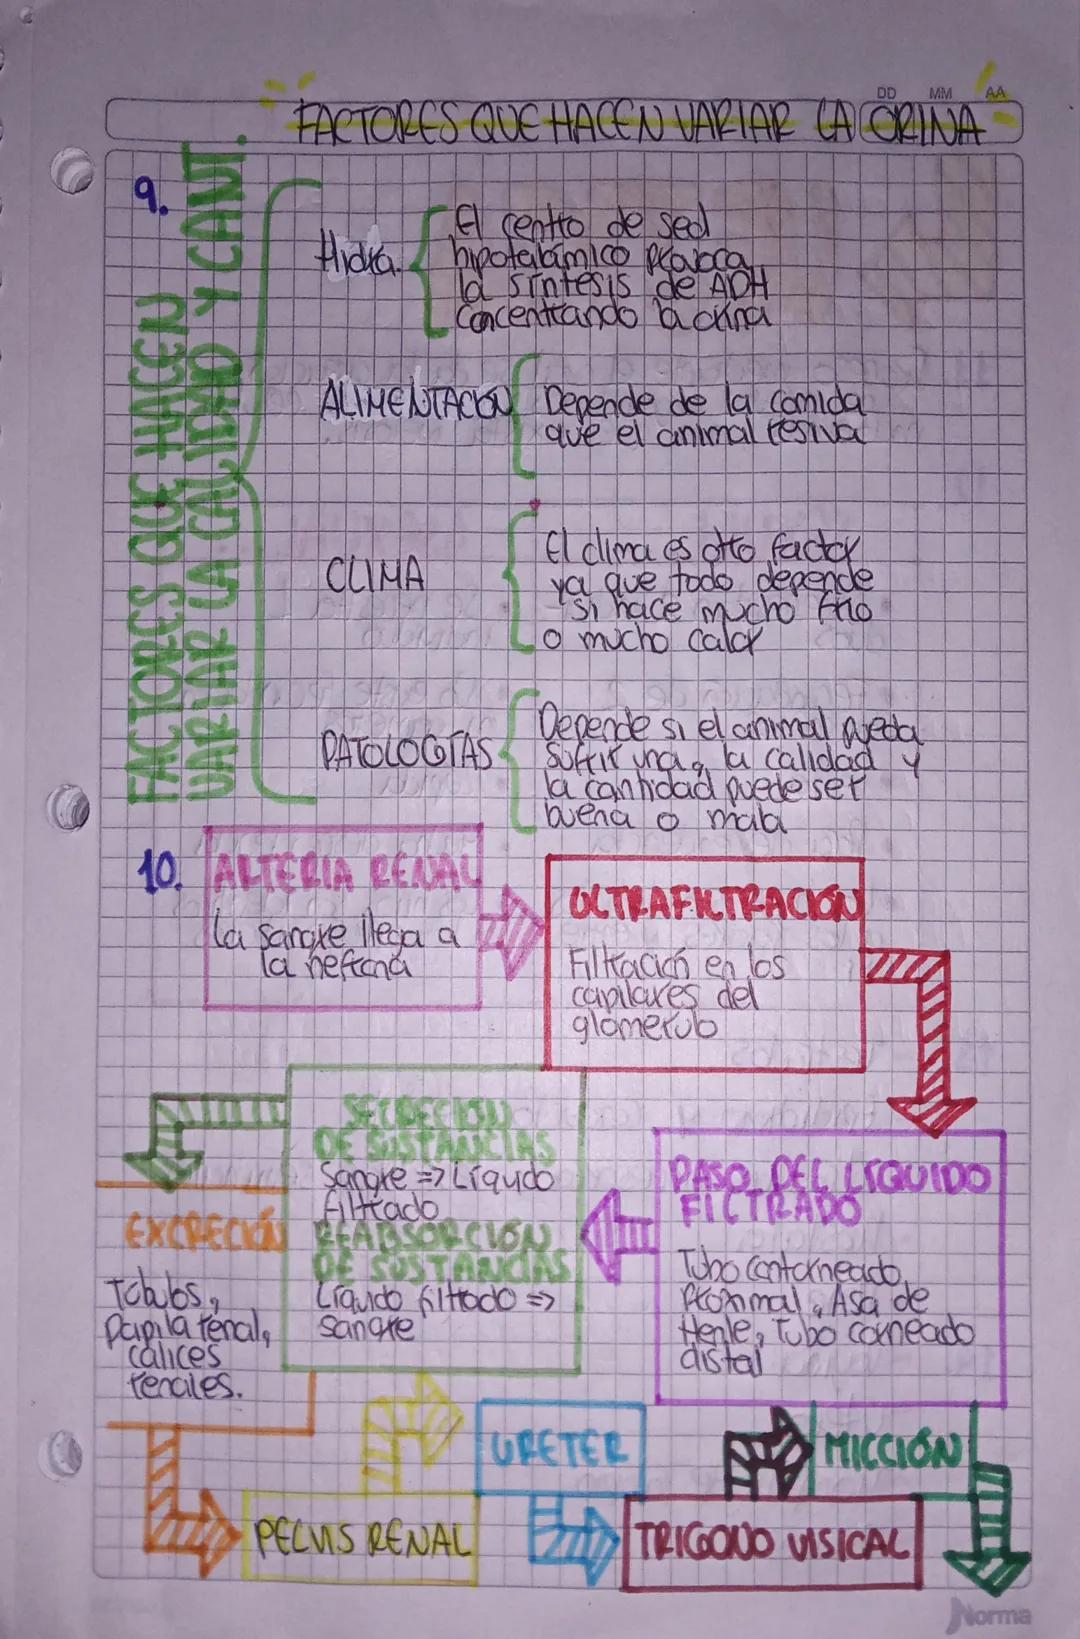 DD MM AA
FACTORES QUE HACEN VARIAR LA ORINA
9.
FACTORES QUE HACEN
VARIAR LA CALIDAD Y CANT.
Hidra.
El centro de sed
hipotalámico provoca
la síntesis de ADH
Concentrando la orina
ALIMENTACION
Depende de la comida
que el animal resiva
CLIMA
El clima es otro factor
ya que todo depende
si hace mucho frio
o mucho calor
PATOLOGÍAS
Depende si el animal pueda
sufrir una, la calidad y
la cantidad puede ser
buena o mala
10.
ARTERIA RENAL
La sangre llega a
la nefrona
ULTRAFILTRACIÓN
Filtración en los
capilares del
glomerulo
PASO DEL LÍQUIDO
FILTRADO
Tubo contorneado
Proximal, Asa de
Henle, Tubo corneado
distal
SECRECIÓN
DE SUSTANCIAS
Sangre => Líquido
filtrado
REABSORCIÓN
DE SUSTANCIAS
Líquido filtrado =>
sangre
EXCRECIÓN
Tobulos,
papila renal,
calices
renales.
PELVIS RENAL
URETER
TRIGONO VISICAL
MICCIÓN
Norma